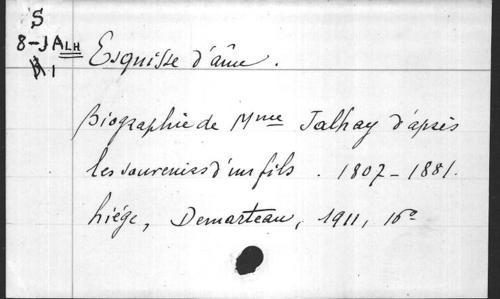 S
8-JALH
1
Esquisse d'âme.
Biographie de Mme Jalhay d'après
les souvenirs d'un fils. 1807-1881.
Liége, Demarteau, 1911, 16°